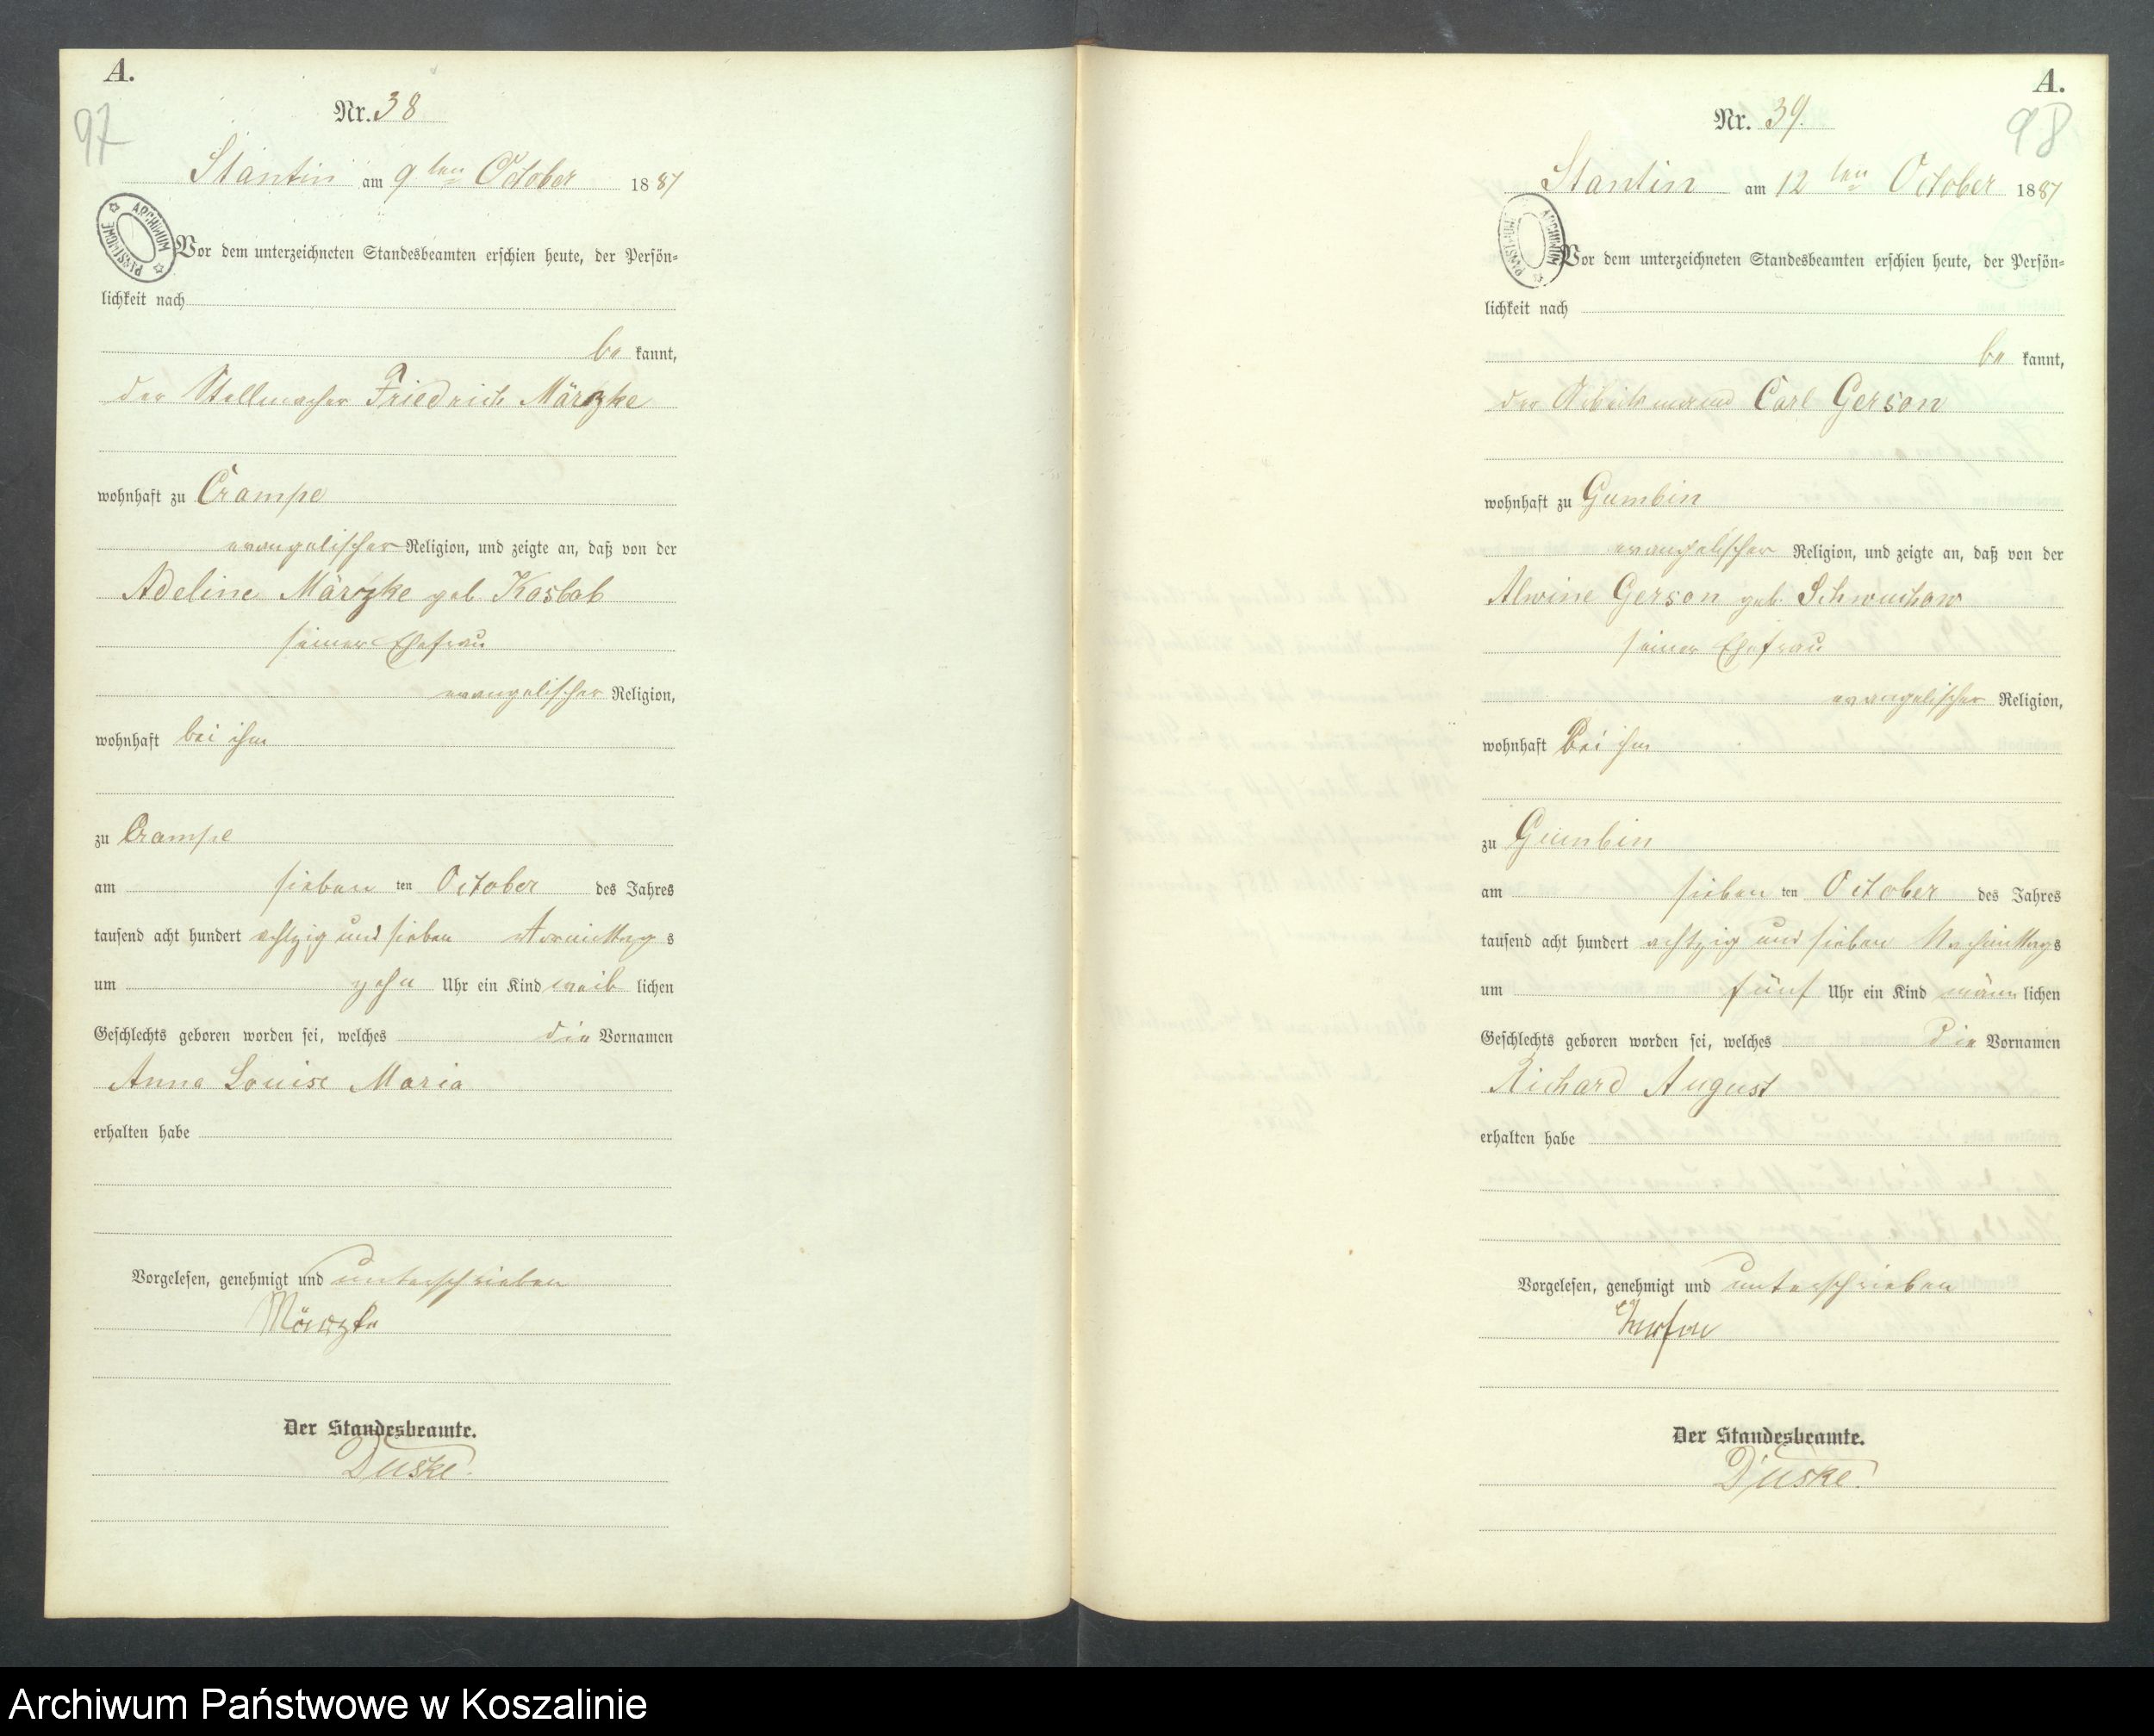 A.
97
Nr. 38
Stantin am 9ten October 1887
ARCHIWUM PAŃSTWOWE
Vor dem unterzeichneten Standesbeamten erschien heute, der Persön-
lichkeit nach
be kannt,
der Stellmacher Friedrich Märzke
wohnhaft zu Crampe
evangelischer Religion, und zeigte an, daß von der
Adeline Märzke geb. Kosbab
seiner Ehefrau
evangelischer Religion,
wohnhaft bei ihm
zu Crampe
am sieben ten October des Jahres
tausend acht hundert achtzig und sieben Vormittag s
um zehn Uhr ein Kind weib lichen
Geschlechts geboren worden sei, welches die Vornamen
Anna Louise Maria
erhalten habe
Vorgelesen, genehmigt und unterschrieben
Märzke
Der Standesbeamte.
Duske.
A.
98
Nr. 39.
Stantin am 12ten October 1887
ARCHIWUM PAŃSTWOWE
Vor dem unterzeichneten Standesbeamten erschien heute, der Persön-
lichkeit nach
be kannt,
der Arbeitsmann Carl Gerson
wohnhaft zu Gumbin
evangelischer Religion, und zeigte an, daß von der
Alwine Gerson geb. Schwuchow
seiner Ehefrau
evangelischer Religion,
wohnhaft bei ihm
zu Gumbin
am sieben ten October des Jahres
tausend acht hundert achtzig und sieben Nachmittags
um fünf Uhr ein Kind männ lichen
Geschlechts geboren worden sei, welches die Vornamen
Richard August
erhalten habe
Vorgelesen, genehmigt und unterschrieben
Gerson
Der Standesbeamte.
Duske.
Archiwum Państwowe w Koszalinie